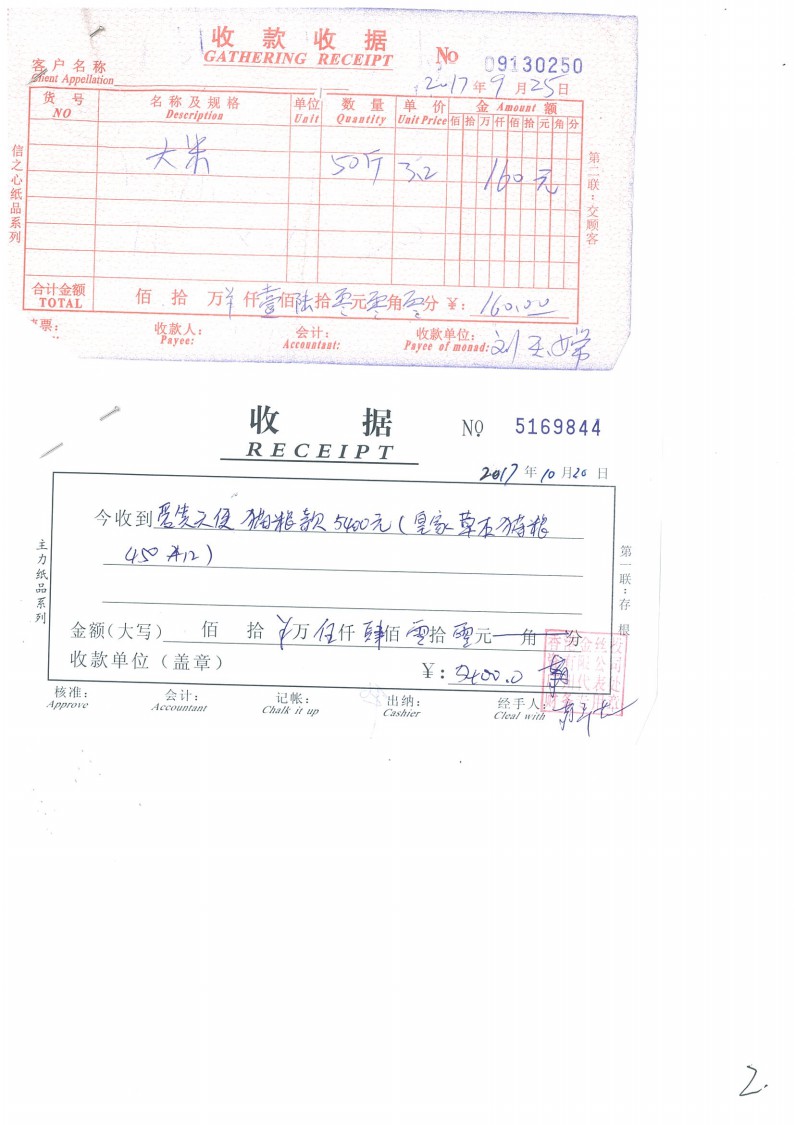 收款收据
GATHERING RECEIPT
No 09130250
客户名称
Client Appellation
2017年9月25日
货号 名称及规格 单位 数量 单价 金 Amount 额
NO Description Unit Quantity Unit Price 佰 拾 万 仟 佰 拾 元 角 分
大米 50斤 3.2 160元
信之心纸品系列
第二联：交顾客
合计金额 佰 拾 万 仟壹佰陆拾零元零角零分 ¥：160.00
TOTAL
收款人： 会计： 收款单位：
Payee: Accountant: Payee of monad: 刘玉嫦
收 据
RECEIPT
NO 5169844
2017年10月20日
今收到 天使 猫粮款 5400元（皇家草本猫粮
450 × 12）
主力纸品系列
第一联：存根
金额（大写） 佰 拾 万伍仟肆佰零拾零元 角 分
收款单位（盖章） ¥：5400.0
核准： 会计： 记帐： 出纳： 经手人：
Approve Accountant Chalk it up Cashier Cleal with
2.